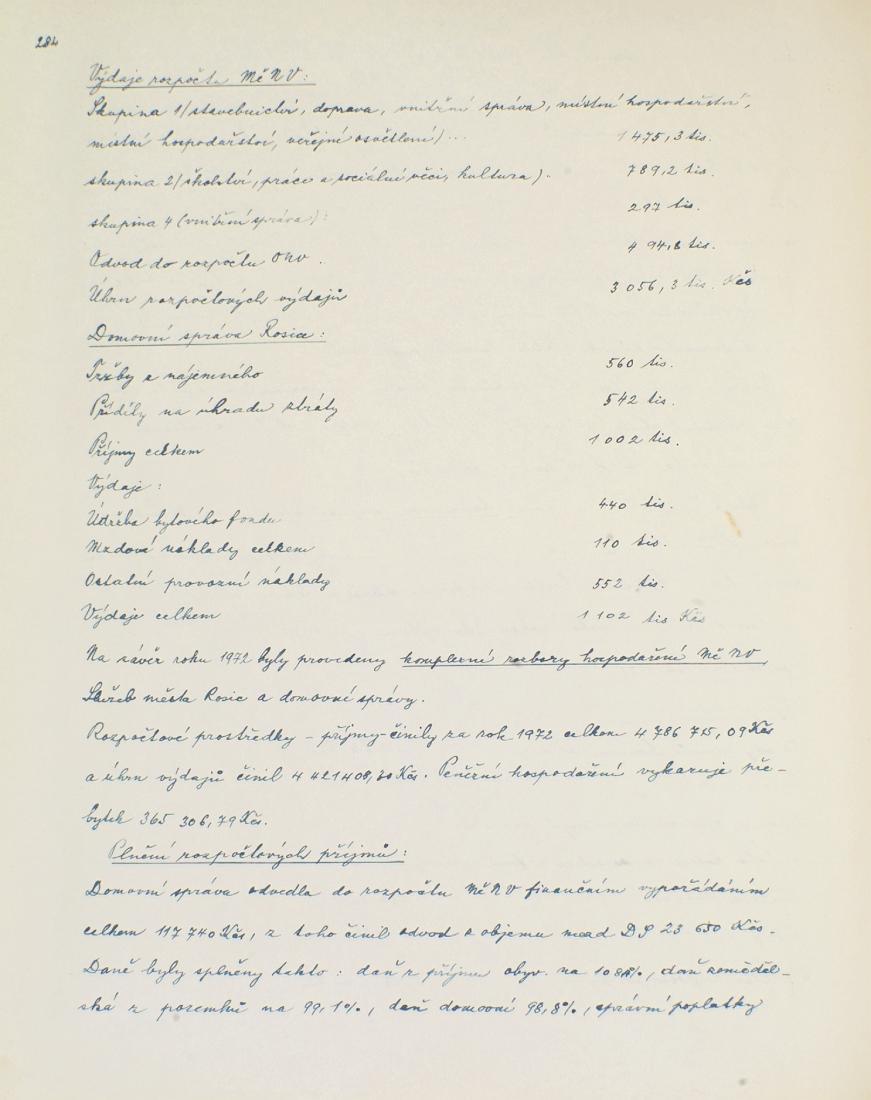 284
Výdaje rozpočtu MěNV:
Skupina 1/stavebnictví, doprava, vnitřní správa, místní hospodářství,
místní hospodářství, veřejné osvětlení)... 1 475,3 tis.
skupina 2/školství, práce a sociální věci, kultura). 789,2 tis.
skupina 4 (vnitřní správa): 297 tis.
Odvod do rozpočtu ONV. 494,8 tis.
Úhrn rozpočtových výdajů 3 056,3 tis. Kčs
Domovní správa Rosice:
Tržby z nájemného 560 tis.
Příděly na úhradu ztráty 542 tis.
Příjmy celkem 1 002 tis.
Výdaje:
Údržba bytového fondu 440 tis.
Mzdové náklady celkem 110 tis.
Ostatní provozní náklady 552 tis.
Výdaje celkem 1 102 tis Kčs
Na závěr roku 1972 byly provedeny komplexní rozbory hospodaření MěNV,
Služeb města Rosic a domovní správy.
Rozpočtové prostředky - příjmy-činily za rok 1972 celkem 4 786 715,09 Kčs
a úhrn výdajů činil 4 421 408,30 Kčs. Peněžní hospodaření vykazuje pře-
bytek 365 306,79 Kčs.
Plnění rozpočtových příjmů:
Domovní správa odvedla do rozpočtu MěNV finančním vypořádáním
celkem 117 740 Kčs, z toho činil odvod z objemu mezd DS 23 650 Kčs.
Daně byly splněny takto: daň z příjmu obyv. na 108%, daň zeměděl-
ská z pozemků na 99,1%, daň domovní 98,8%, správní poplatky